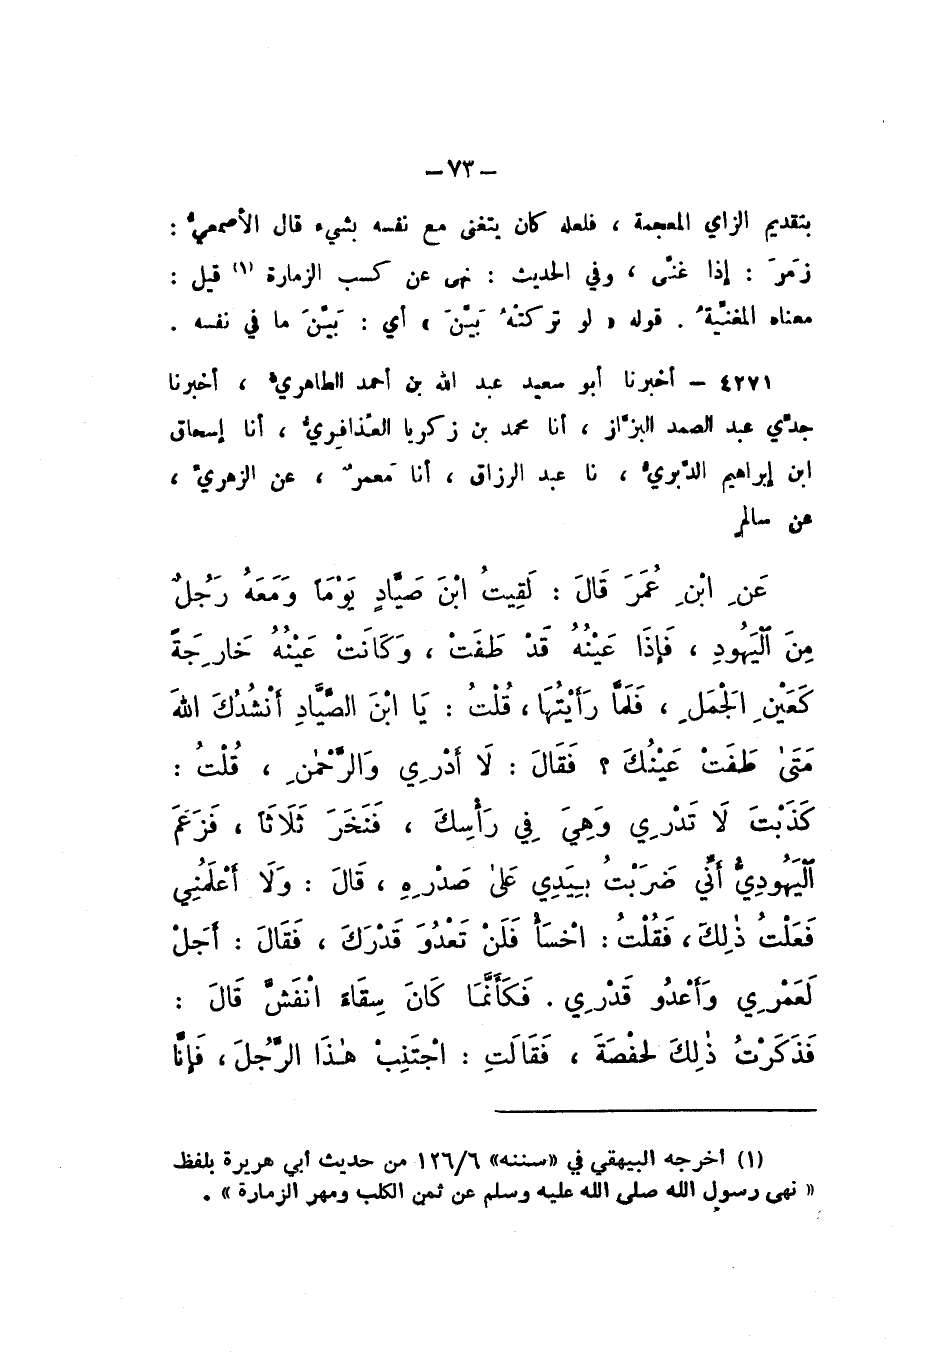 -٧٣-
بتقديم الزاي المعجمة ، فلعله كان يتغنى مع نفسه بشيء قال الأصمعيُّ :
زمَرَ : إذا غنَّى ، وفي الحديث : نهى عن كسب الزمارة (١) قيل :
معناه المغنِّيةُ . قوله « لو تركتْهُ بَيَّنَ » أي : بَيَّنَ ما في نفسه .
٤٢٧١ – أخبرنا أبو سعيد عبد الله بن أحمد الطاهريُّ ، أخبرنا
جدِّي عبد الصمد البزَّاز ، أنا محمد بن زكريا العُذافِريُّ ، أنا إسحاق
ابن إبراهيم الدَّبريُّ ، نا عبد الرزاق ، أنا مَعمرٌ ، عن الزهريِّ ،
عن سالم
عَنِ ابْنِ عُمَرَ قَالَ : لَقِيتُ ابْنَ صَيَّادٍ يَوْمَاً وَمَعَهُ رَجُلٌ
مِنَ الْيَهُودِ ، فَإِذَا عَيْنُهُ قَدْ طَفَتْ ، وَكَانَتْ عَيْنُهُ خَارِجَةً
كَعَيْنِ الْجَمَلِ ، فَلَمَّا رَأَيْتُهَا ، قُلْتُ : يَا ابْنَ الصَّيَّادِ أَنْشُدُكَ اللهَ
مَتَى طَفَتْ عَيْنُكَ ؟ فَقَالَ : لَا أَدْرِي وَالرَّحْمٰنِ ، قُلْتُ :
كَذَبْتَ لَا تَدْرِي وَهِيَ فِي رَأْسِكَ ، فَنَخَرَ ثَلَاثَاً ، فَزَعَمَ
الْيَهُودِيُّ أَنِّي ضَرَبْتُ بِيَدِي عَلَى صَدْرِهِ ، قَالَ : وَلَا أَعْلَمُنِي
فَعَلْتُ ذٰلِكَ ، فَقُلْتُ : اخْسَأْ فَلَنْ تَعْدُوَ قَدْرَكَ ، فَقَالَ : أَجَلْ
لَعَمْرِي وَأَعْدُو قَدْرِي . فَكَأَنَّمَا كَانَ سِقَاءً انْفَشَّ قَالَ :
فَذَكَرْتُ ذٰلِكَ لِحَفْصَةَ ، فَقَالَتِ : اجْتَنِبْ هٰذَا الرَّجُلَ ، فَإِنَّا
(١) أخرجه البيهقي في «سننه» ١٢٦/٦ من حديث أبي هريرة بلفظ
« نهى رسول الله صلى الله عليه وسلم عن ثمن الكلب ومهر الزمارة » .